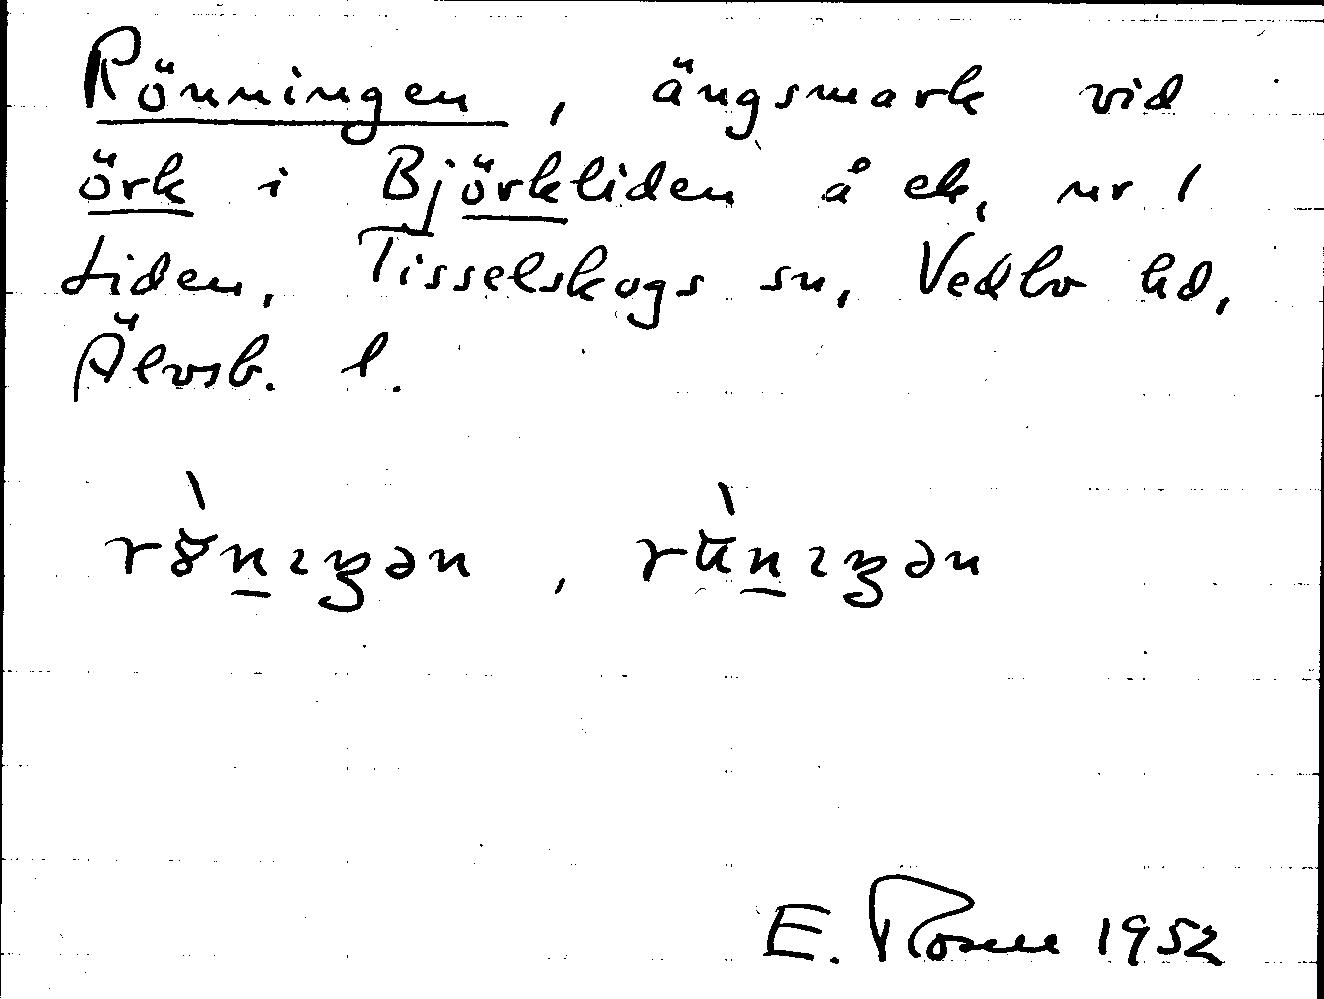 Rönningen, ängsmark vid
örk i Björkliden å ek, nr 1
Liden, Tisselskogs sn, Vedbo hd,
Älvsb. l.
E. Rosell 1952